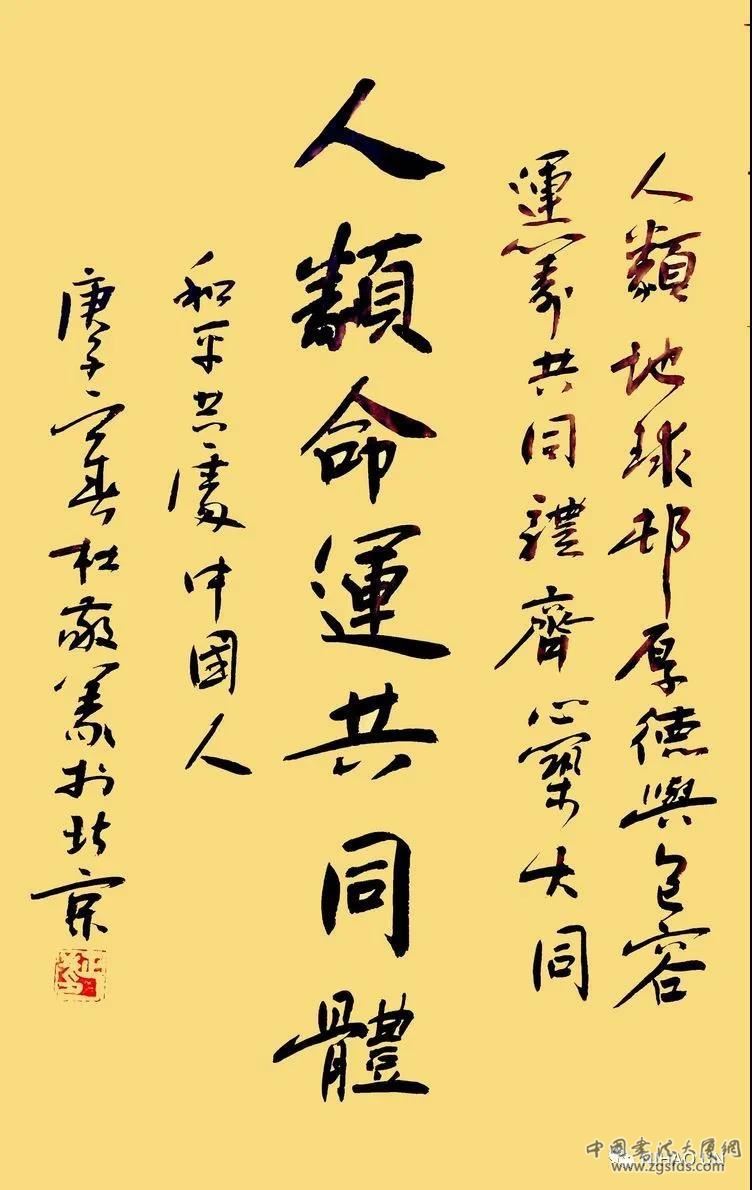 人類地球邨厚德與包容
運籌共同禮齊心築大同
人類命運共同體
和平共處中國人
庚子春杜敬義於北京
中國書法大廈網
www.zgsfds.com